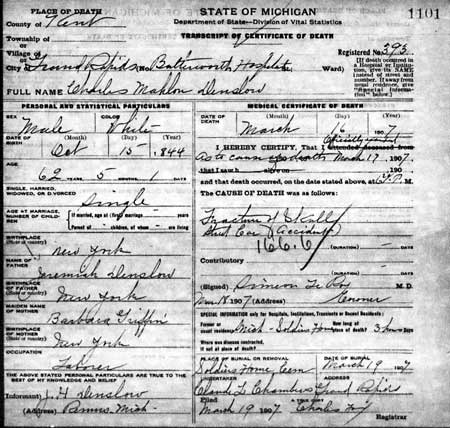 PLACE OF DEATH
STATE OF MICHIGAN
1101
County of Kent
Department of State—Division of Vital Statistics
Township of
TRANSCRIPT OF CERTIFICATE OF DEATH
Village of
Registered No. 393
City of Grand Rapids No. Butterworth Hospital Ward)
[If death occurred in a Hospital or Institution, give its NAME instead of street and number. If away from usual residence, give "Special information" below.]
FULL NAME Charles Mahlon Denslow
PERSONAL AND STATISTICAL PARTICULARS
SEX Male COLOR White
DATE OF BIRTH (Month) (Day) (Year)
Oct 15 1844
AGE
62 YEARS 5 MONTHS 1 DAYS
SINGLE, MARRIED, WIDOWED, OR DIVORCED
Single
AGE AT MARRIAGE, NUMBER OF CHILDREN
If married, age at (first) marriage years
Parent of children, of whom are living
BIRTHPLACE
(State or country)
New York
NAME OF FATHER
Jeremiah Denslow
BIRTHPLACE OF FATHER
(State or country)
New York
MAIDEN NAME OF MOTHER
Barbara Griffin
BIRTHPLACE OF MOTHER
(State or country)
New York
OCCUPATION
Laborer
THE ABOVE STATED PERSONAL PARTICULARS ARE TRUE TO THE BEST OF MY KNOWLEDGE AND BELIEF
(Informant) J. H. Denslow
(Address) Mich
MEDICAL CERTIFICATE OF DEATH
DATE OF DEATH
March 16 1907
(Month) (Day) (Year)
I HEREBY CERTIFY, That I attended deceased from
As to cause of death March 17, 1907
that I saw h alive on 190
and that death occurred, on the date stated above, at P. M.
The CAUSE OF DEATH was as follows:
Fracture of Skull
Street Car (Accident)
166.6 (DURATION) DAYS
Contributory
(DURATION) DAYS
(Signed) Simeon LeRoy M. D.
1907 (Address) Coroner
SPECIAL INFORMATION only for Hospitals, Institutions, Transients or Recent Residents
Former or usual residence Mich Soldiers Home How long at place of death? 3 hrs Days
Where was disease contracted, if not at place of death?
PLACE OF BURIAL OR REMOVAL DATE OF BURIAL
Soldiers Home Cem March 19 1907
UNDERTAKER ADDRESS
Chambers Grand Rapids
Filed A TRUE COPY
March 19 1907 Charles
Registrar